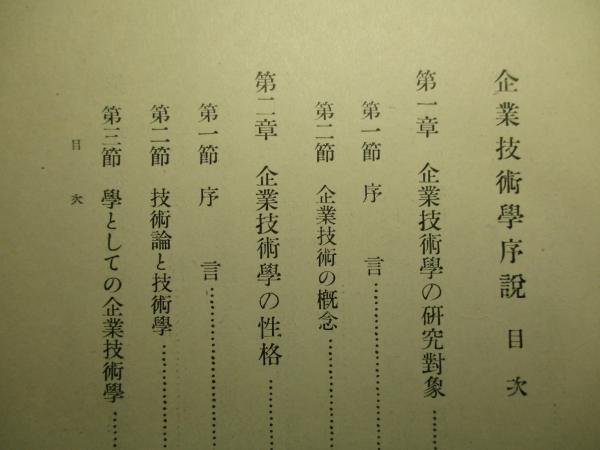 企業技術學序說 目次
第一章 企業技術學の研究對象……
第一節 序言……
第二節 企業技術の槪念……
第二章 企業技術學の性格……
第一節 序言……
第二節 技術論と技術學……
第三節 學としての企業技術學……
目次